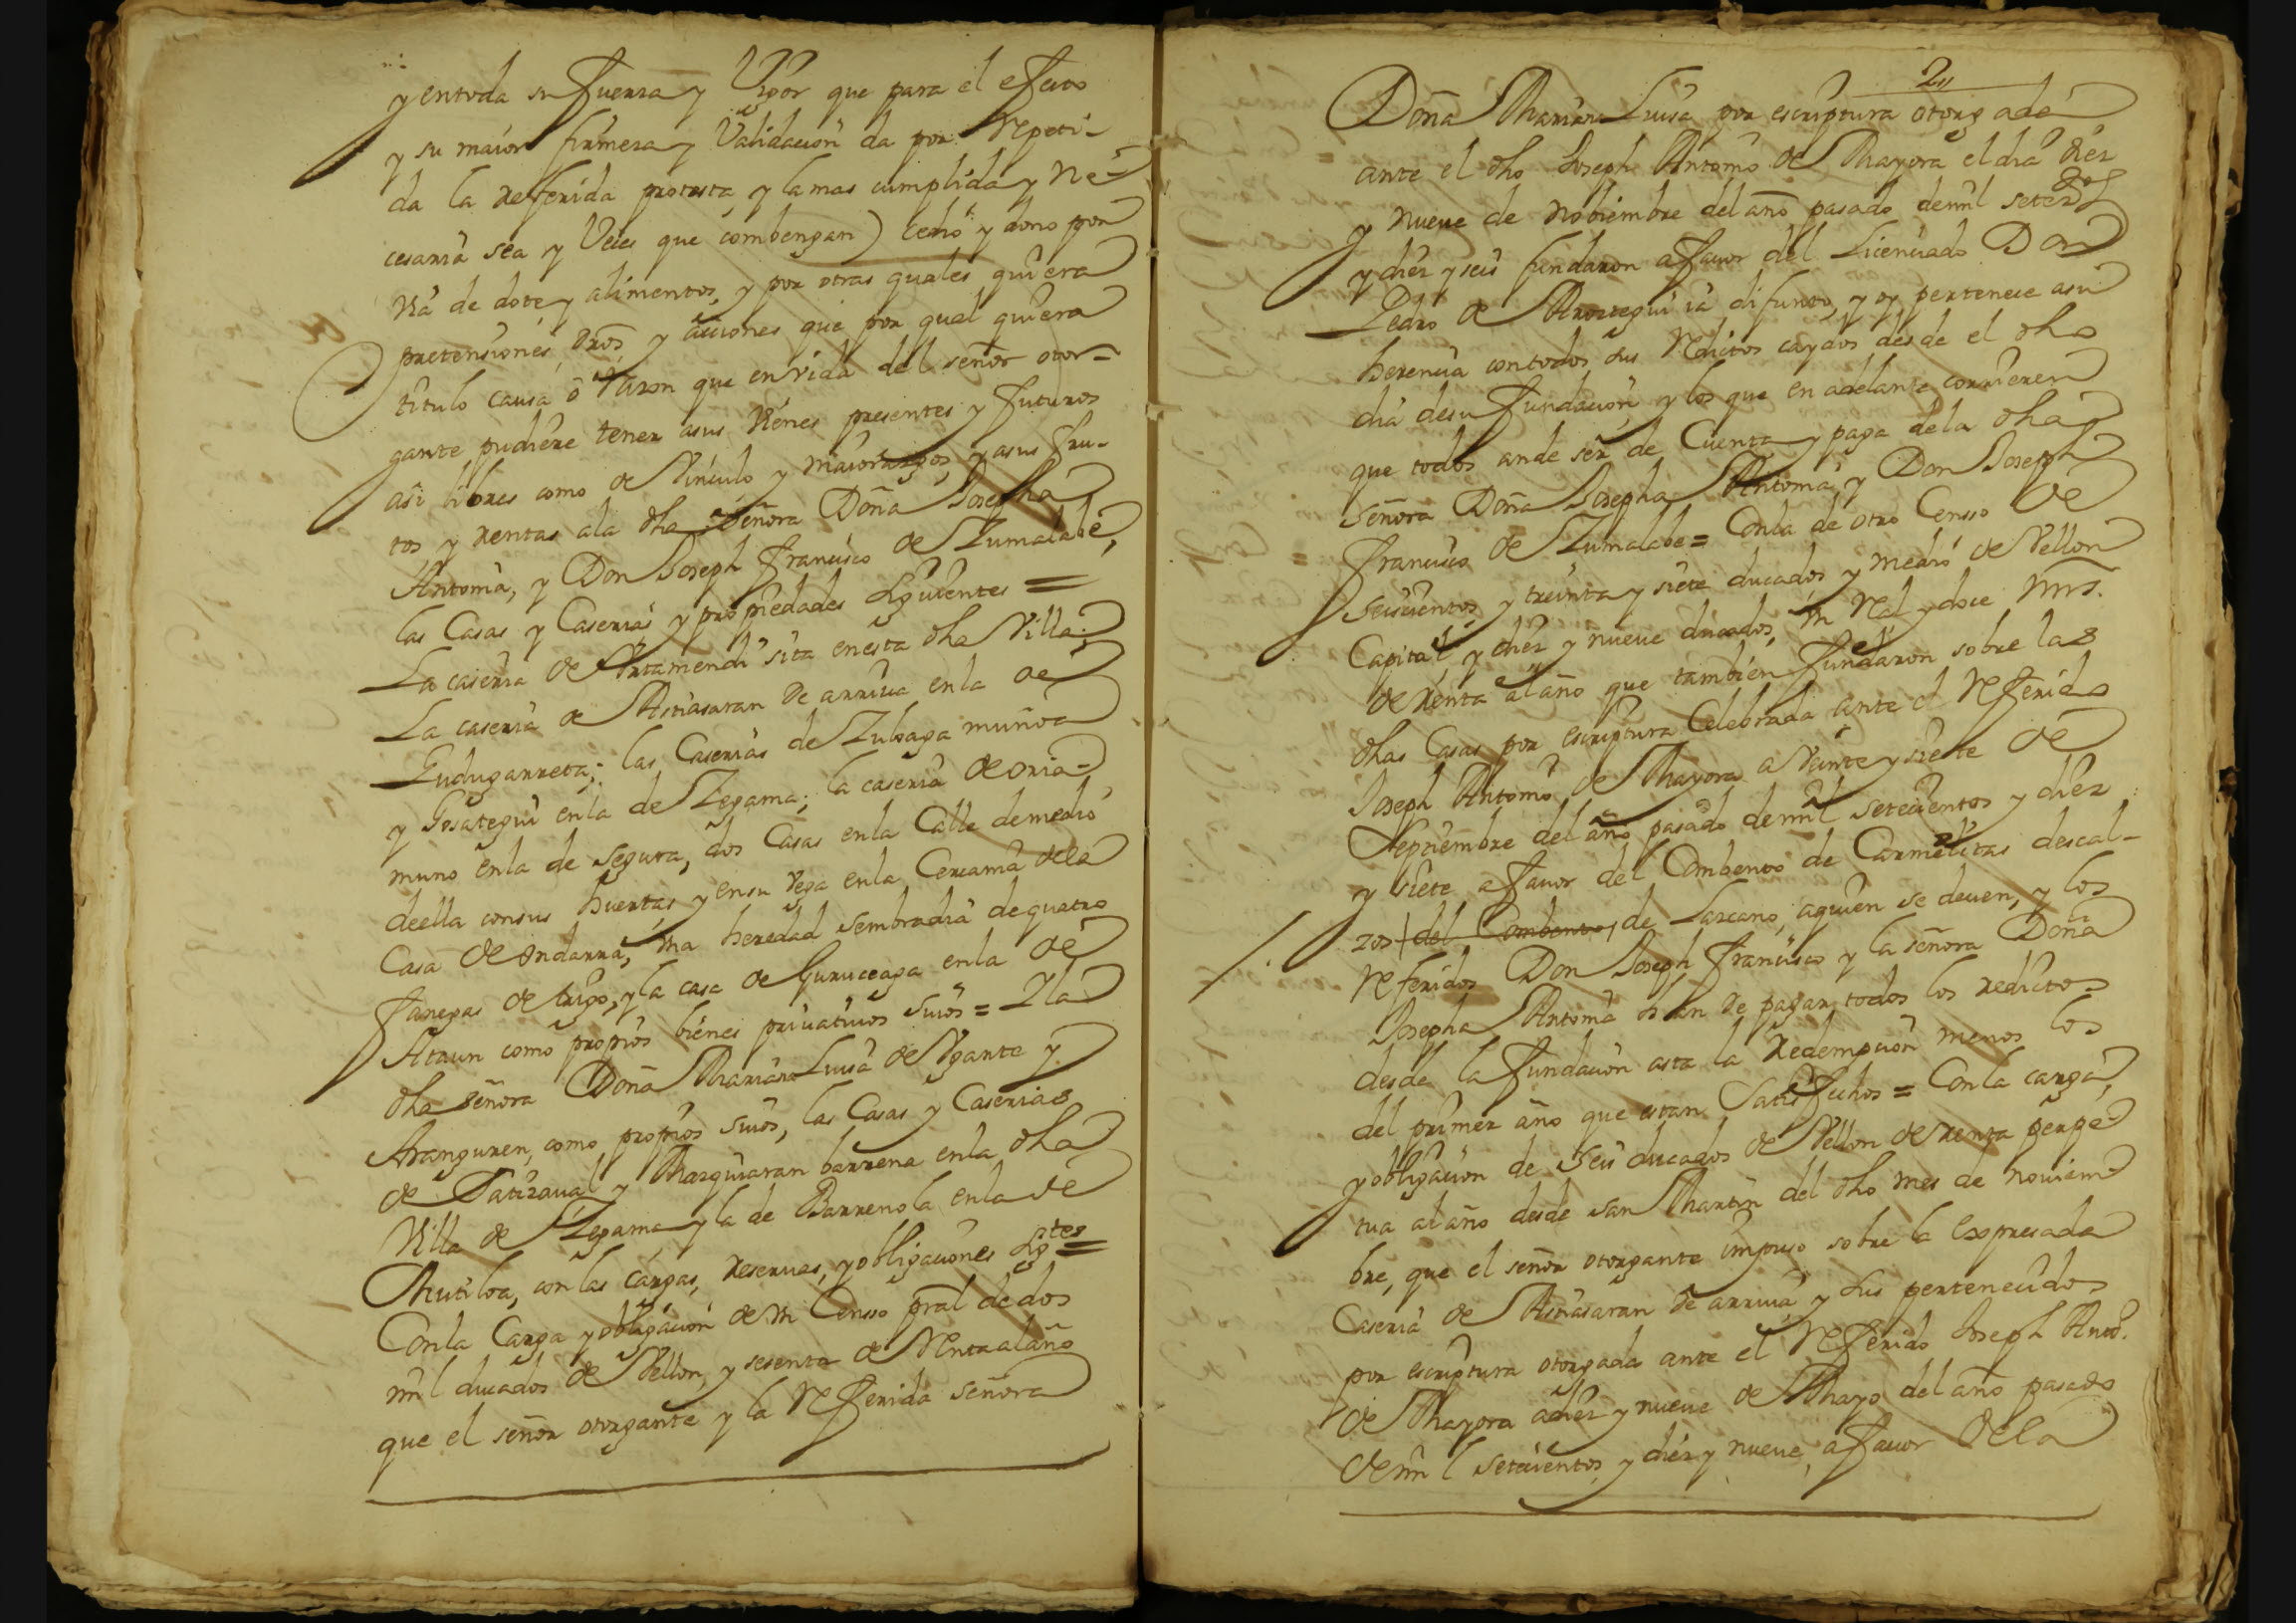 y entoda su fuerza y Vigor que para el efecto
y su maior firmeza y Validacion da por Repeti-
da la referida protesta, y la mas cumplida y ne-
cesaria sea y Veces que combengan) cedio y dono por
via de dote y alimentos, y por otras quales quiera
pretensiones, dros, y acciones que por qual quiera
titulo causa o razon que en vida del señor otor-
gante pudiere tener a sus vienes presentes y futuros
asi libres como de Vinculo y maiorazgos, y a sus fru-
tos y rentas ala dha señora Doña Josepha
Antonia, y Don Joseph francisco de Zumalabe,
las Casas y Caserias y propiedades siguientes =
La caseria de Urtamendi sita enesta dha Villa:
La caseria de Astiasaran de arriva enla de
Gudugarreta; las Caserias de Zuloaga muñoa
y Gosategui enla de Zegama; la caseria de oria-
muno enla de segura, dos Casas enla Calle demedio
deella consus huertas, y ensu Vega enla Cercania dela
Casa de ondarra, una heredad sembradia de quatro
fanegas de trigo, y la casa de Guruceaga enla de
Ataun como propios bienes privativos suios = Y la
dha señora Doña Mariana Luisa de Ugarte y
Aranguren, como propios suios, las Casas y Caserias
de Barrena enla dha
Villa de Zegama, y la de Barrenola enla de
Mutiloa, con las cargas, reservas, y obligaciones sigtes =
Conla Carga y obligacion de un Censso pral de dos
mil ducados de Vellon, y sesenta de Renta al año
que el señor otorgante y la Referida señora
Doña Mariana Luisa por escriptura otorgada
ante el dho Joseph Antonio de Mayora el dia diez
y nueve de nobiembre del año pasado de mil setezos
y diez y seis fundaron a favor del Licenciado Don
Pedro de Arostegui ia difunto, y oy pertenece asu
herencia contodos sus Reditos caydos desde el dho
dia desu fundacion, y los que en adelante corrieren
que todos ande ser de Cuenta y paga dela dha
señora Doña Josepha Antonia, y Don Joseph
francisco de Zumalabe = Conla de otro Censso de
seiscientos y treinta y siete ducados y medio de Vellon
Capital, y diez y nueve ducados, un Real y doce mrs.
de renta al año que tambien fundaron sobre las
dhas Casas por escriptura Celebrada ante el Referido
Joseph Antonio de Mayora a Veinte y siete de
Septiembre del año pasado de mil setecientos y diez
y siete a favor del Combento de Carmelitas descal-
zos del Combento, de Lazcano, aquien se deven, y los
referidos Don Joseph francisco y la señora Doña
Josepha Antonia han de pagar todos los redictos
desde la fundacion asta la Redempcion menos los
del primer año que estan Satisfechos = Conla carga,
y obligacion de seis ducados de Vellon de renta perpe-
tua al año desde san Martin del dho mes de noviem-
bre, que el señor otorgante impuso sobre la Expresada
Caseria de Astiasaran de arriva y sus pertenecidos
por escriptura otorgada ante el Referido Joseph Anto.
de Mayora a diez y nueve de Mayo del año pasado
de mil setecientos y diez y nueve, a favor dela